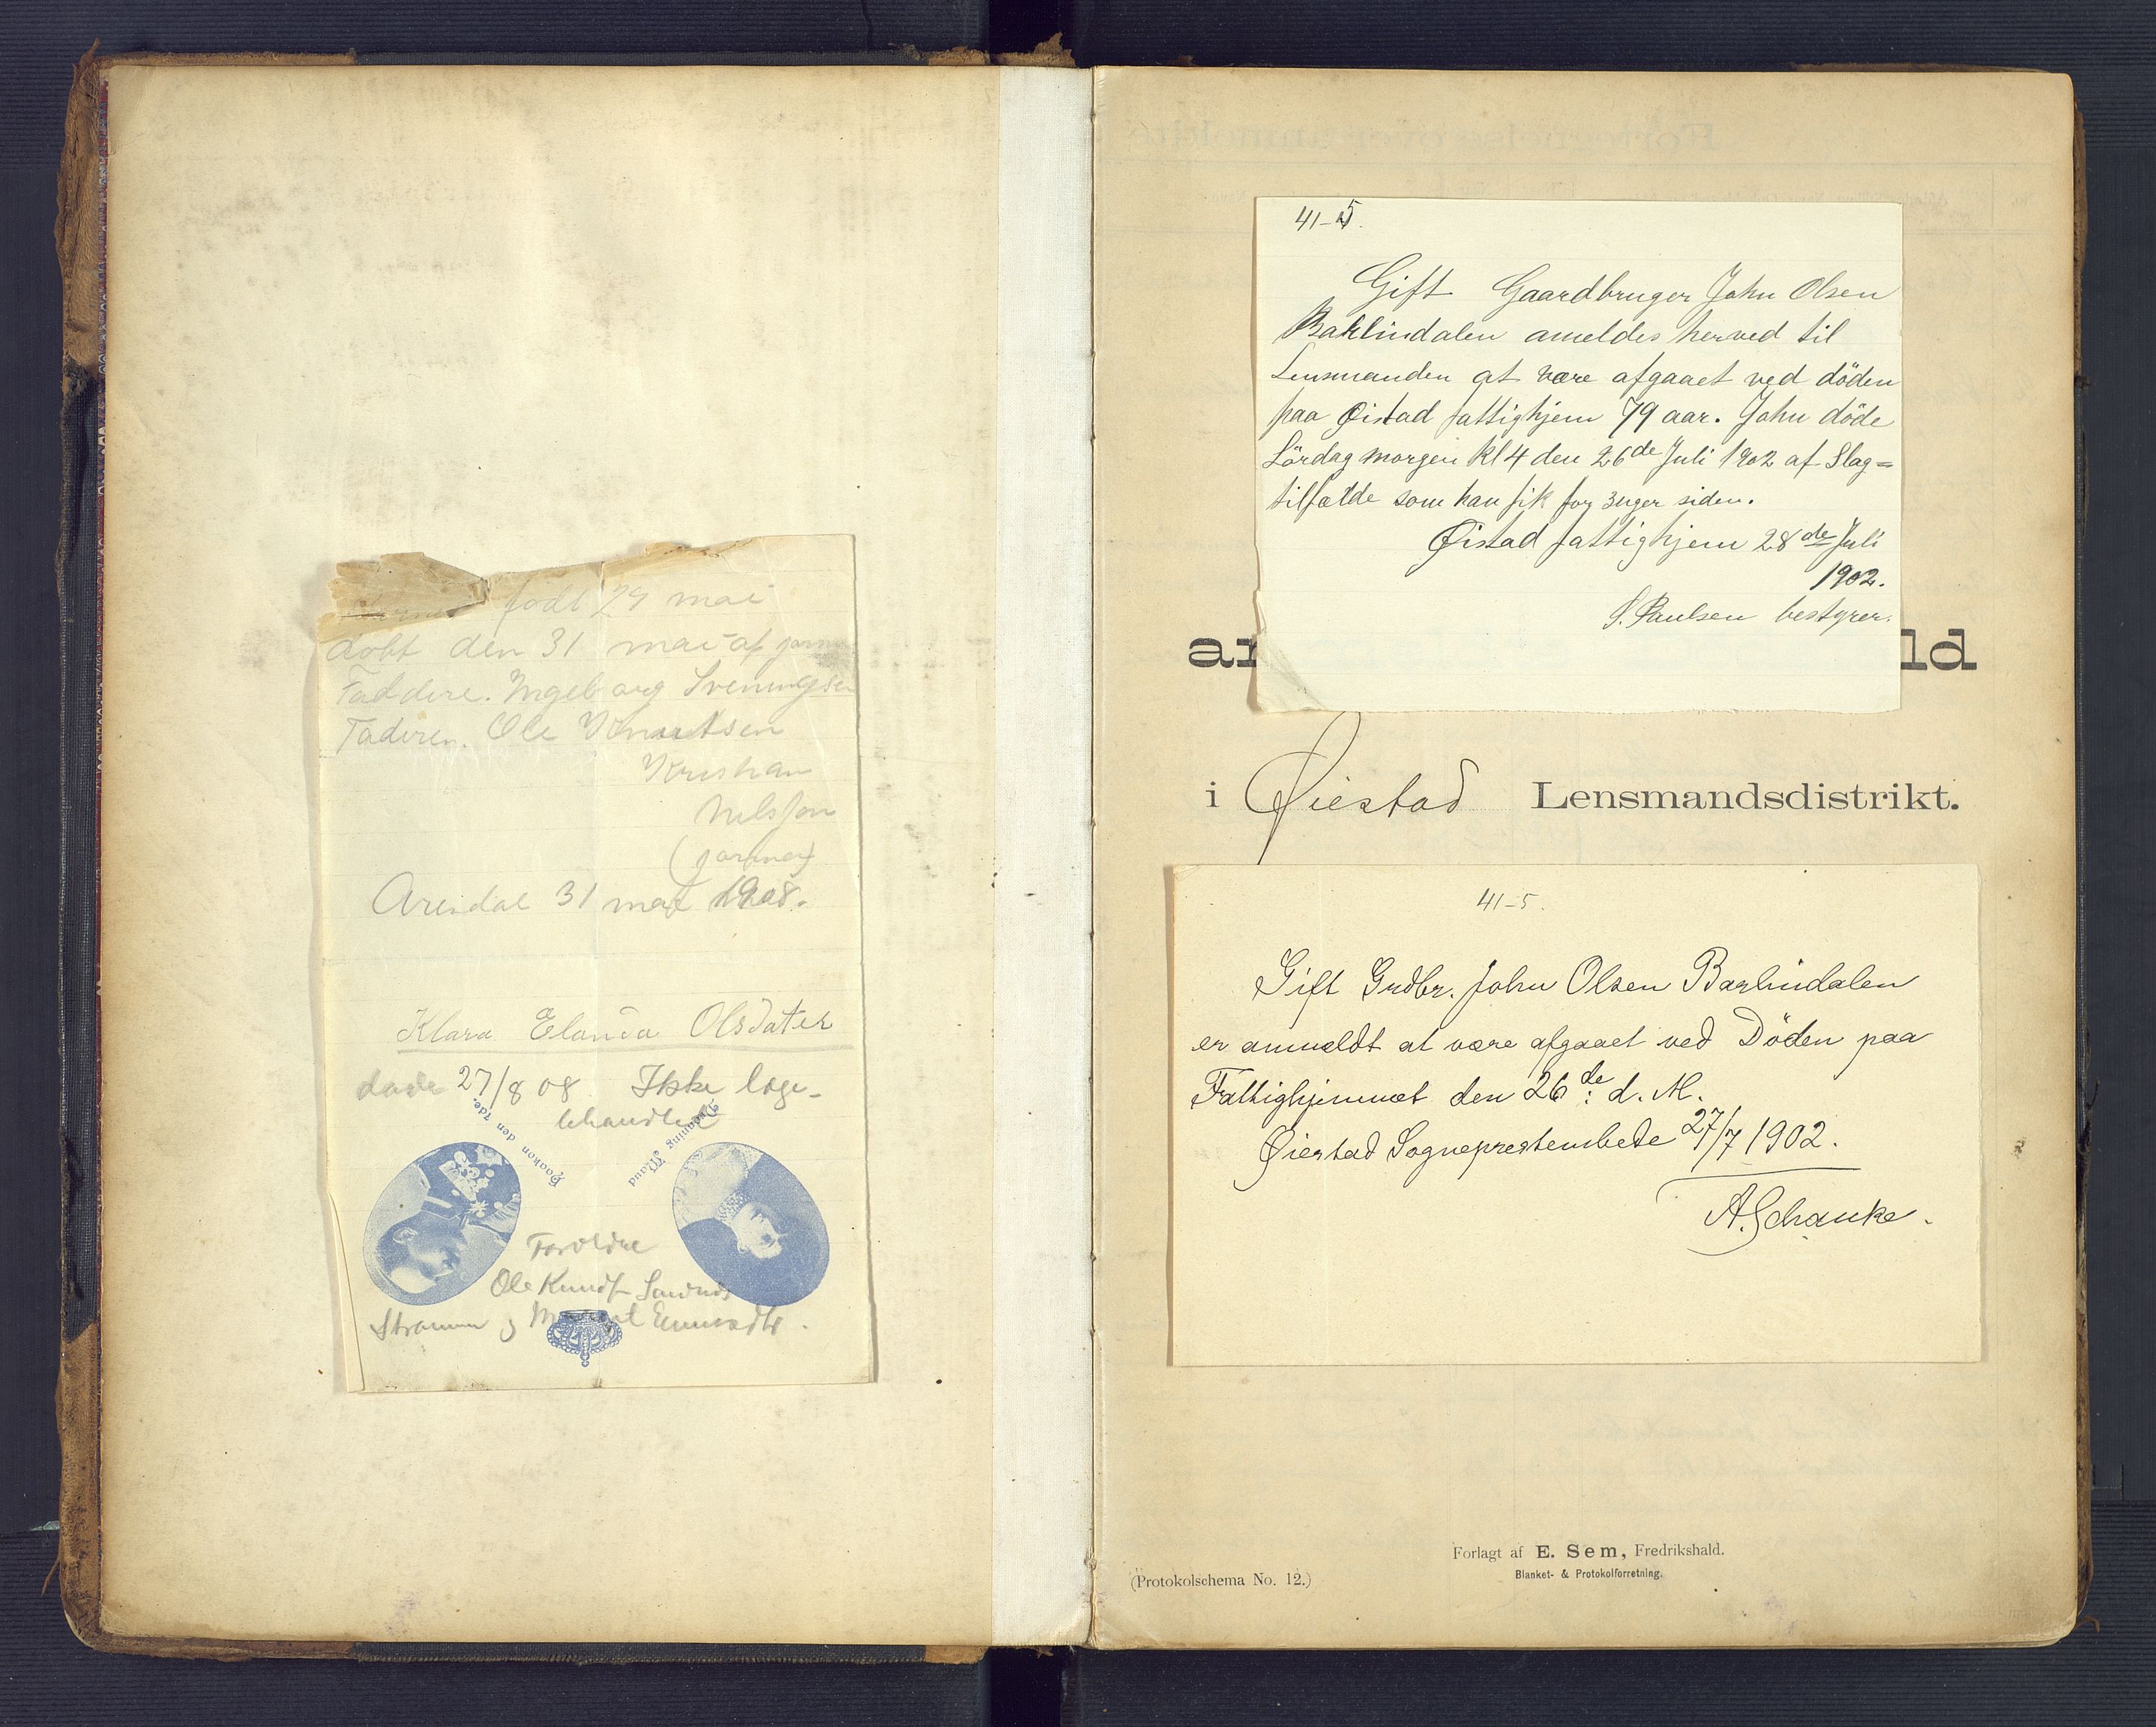 født 29 mai
døbt den 31 mai af
Faddere. Ingeborg Sveningsen
Faderen. Ole Knudtsen
Kristian
Nilssen
Arendal 31 mai 1908.
Klara Elanda Olsdater
døde 27/8 08 Ikke læge-
behandled
Haakon den 7de.
Dronning Maud
Forældre
Ole Knuds
Strømm og
41-5.
Gift Gaardbruger John Olsen
Baklindalen ameldes herved til
Lensmanden at være afgaaet ved döden
paa Øistad fattighjem 79 aar. John döde
Lördag morgen kl 4 den 26de Juli 1902 af Slag=
tilfælde som han fik for 3 uger siden.
Øistad fattighjem 28de Juli
1902.
S. Paulsen bestyrer.
ar ld
i Øiestad Lensmandsdistrikt.
41-5.
Gift Grdbr. John Olsen Barlindalen
er anmeldt at være afgaaet ved Döden paa
Fattighjemmet den 26de: d. M.
Øiestad Sogneprestembede 27/7 1902.
A. Schanke.
Forlagt af E. Sem, Fredrikshald.
Blanket- & Protokolforretning.
(Protokolschema No. 12.)